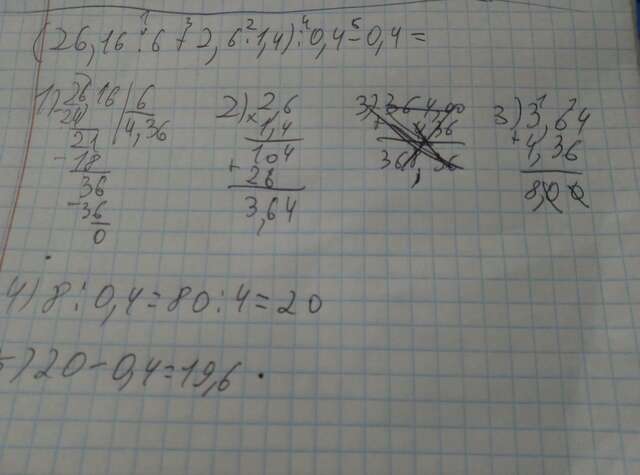 (26,16 : 6 + 2,6 · 1,4) : 0,4 - 0,4 =
1 3 2 4 5
1) 26,16 | 6
-24 | 4,36
21
-18
36
-36
0
2) 2,6
× 1,4
104
+ 26
3,64
3) 3,64
+ 4,36
8,00
4) 8 : 0,4 = 80 : 4 = 20
5) 20 - 0,4 = 19,6 .